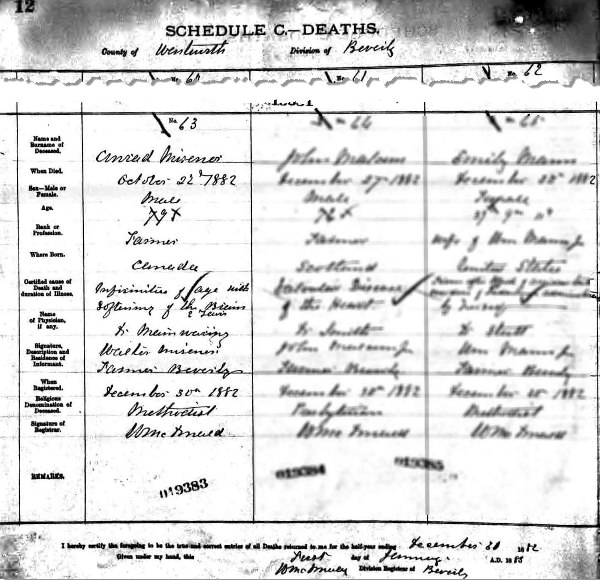 12
SCHEDULE C.—DEATHS.
County of Wentworth Division of Beverly
No. 60 No. 61 No. 62
No. 63 64 65
Name and Surname of Deceased. Conrad Misener John Emily Mann
When Died. October 22d 1882 December 27th 1882 December 1882
Sex—Male or Female. Male Male Female
Age. 79 76
Rank or Profession. Farmer Farmer wife of Wm Mann Jr
Where Born. Canada Scotland United States
Certified cause of Death and duration of Illness. Infirmities of age with Softening of the Brain 2 years Valvular Disease of the Heart
Name of Physician, if any. Dr Mainwaring Dr Smith Dr
Signature, Description and Residence of Informant. Walter Misener Farmer Beverly John Farmer Beverly Wm Mann Jr Farmer Beverly
When Registered. December 30th 1882 December 30th 1882 December 1882
Religious Denomination of Deceased. Methodist Presbyterian Methodist
Signature of Registrar. W McDonald W McDonald W McDonald
REMARKS. 019383 019384 019385
I hereby certify the foregoing to be the true and correct entries of all Deaths returned to me for the half-year ending December 30 1882
Given under my hand, this First day of January A.D. 1883
W McDonald Division Registrar of Beverly